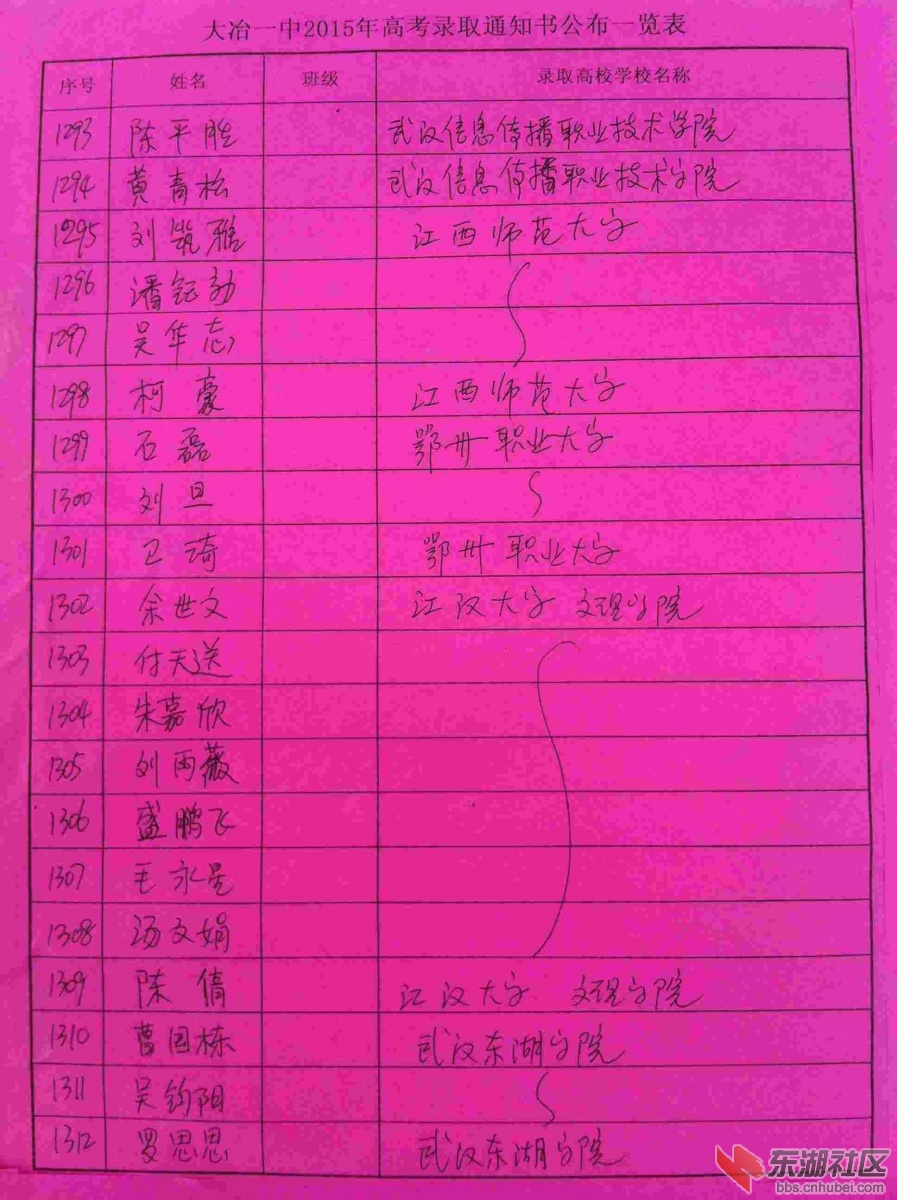 大冶一中2015年高考录取通知书公布一览表
序号 姓名 班级 录取高校学校名称
1293 陈平胜 武汉信息传播职业技术学院
1294 黄青松 武汉信息传播职业技术学院
1295 刘筑雅 江西师范大学
1296 潘钰劼
1297 吴华志
1298 柯豪 江西师范大学
1299 石磊 鄂州职业大学
1300 刘旦
1301 卫琦 鄂州职业大学
1302 余世文 江汉大学 文理学院
1303 付天送
1304 朱嘉欣
1305 刘雨薇
1306 盛鹏飞
1307 毛永星
1308 汤文娟
1309 陈倩 江汉大学 文理学院
1310 曹国栋 武汉东湖学院
1311 吴钧阳
1312 罗思思 武汉东湖学院
东湖社区
bbs.cnhubei.com